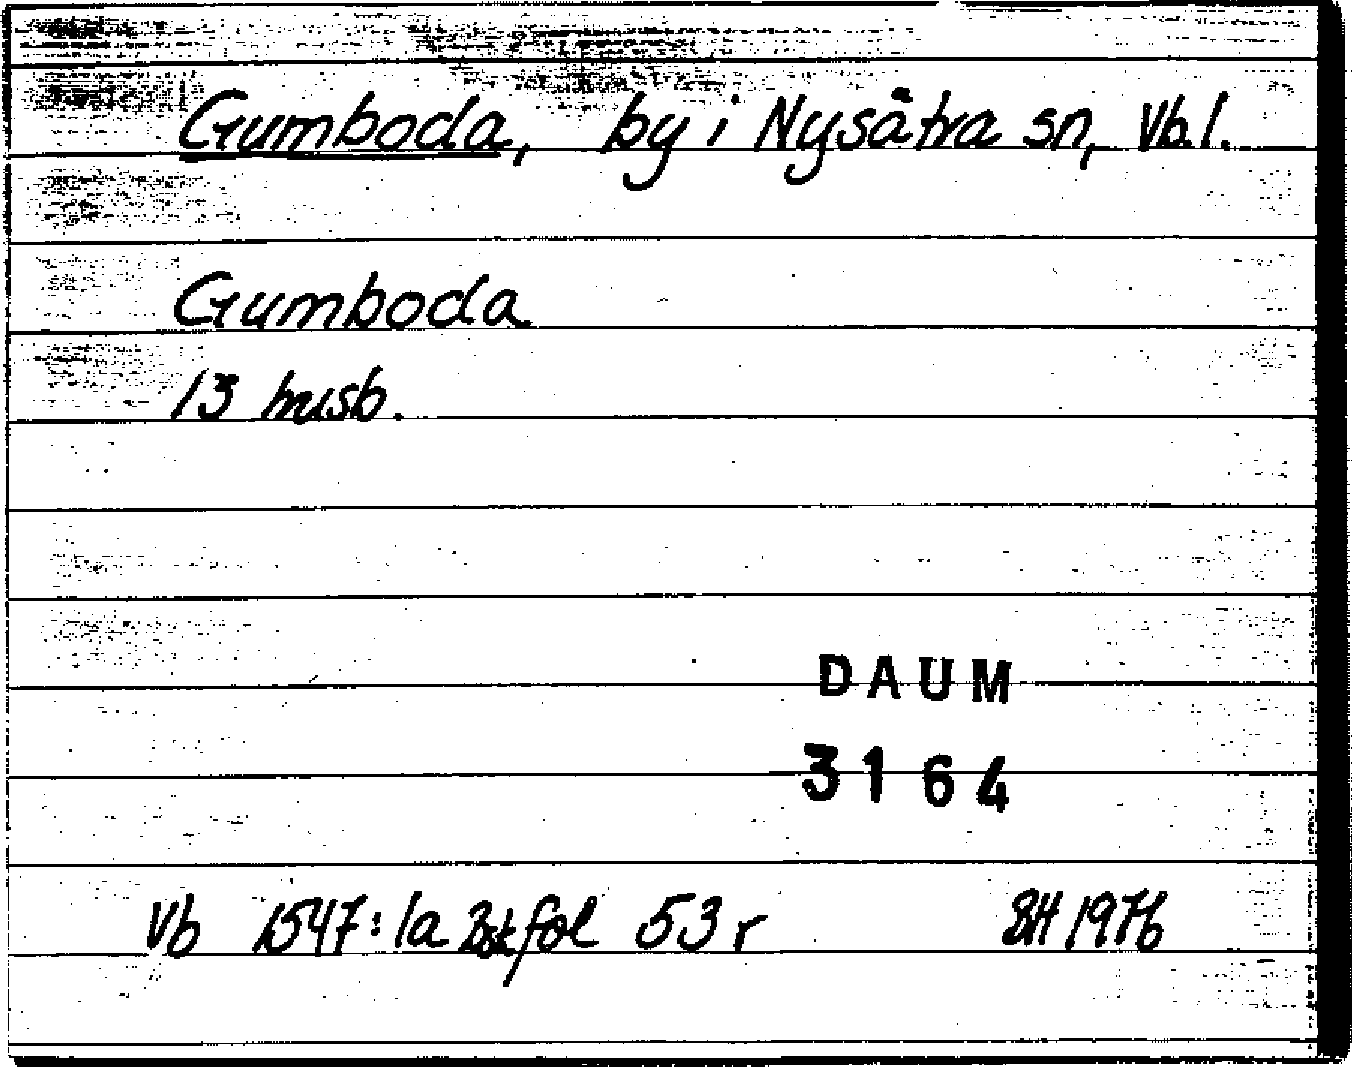 Gumboda, by i Nysätra sn, Vb.l.
Gumboda
13 husb.
DAUM
3164
Vb 1547:1a Bsk fol 53 r SH 1976